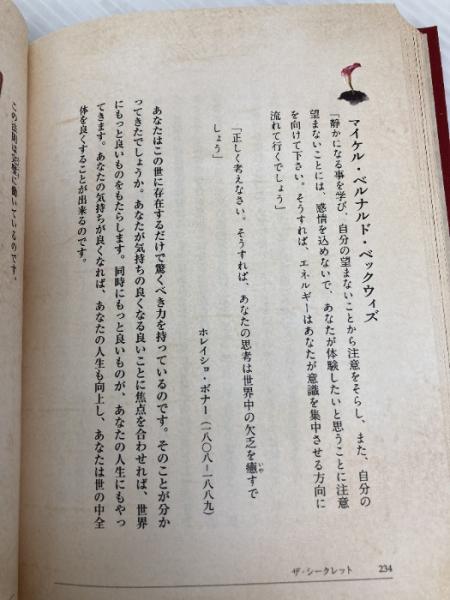 マイケル・ベルナルド・ベックウィズ
「静かになる事を学び、自分の望まないことから注意をそらし、また、自分の
望まないことには、感情を込めないで、あなたが体験したいと思うことに注意
を向けて下さい。そうすれば、エネルギーはあなたが意識を集中させる方向に
流れて行くでしょう」
「正しく考えなさい。そうすれば、あなたの思考は世界中の欠乏を癒すで
いや
しょう」
ホレイショ・ボナー（一八〇八―一八八九）
あなたはこの世に存在するだけで驚くべき力を持っているのです。そのことが分か
ってきたでしょうか。あなたが気持ちの良くなる良いことに焦点を合わせれば、世界
にもっと良いものをもたらします。同時にもっと良いものが、あなたの人生にもやっ
てきます。あなたの気持ちが良くなれば、あなたの人生も向上し、あなたは世の中全
体を良くすることが出来るのです。
この法則は完璧に働いているのです。
ザ・シークレット 234